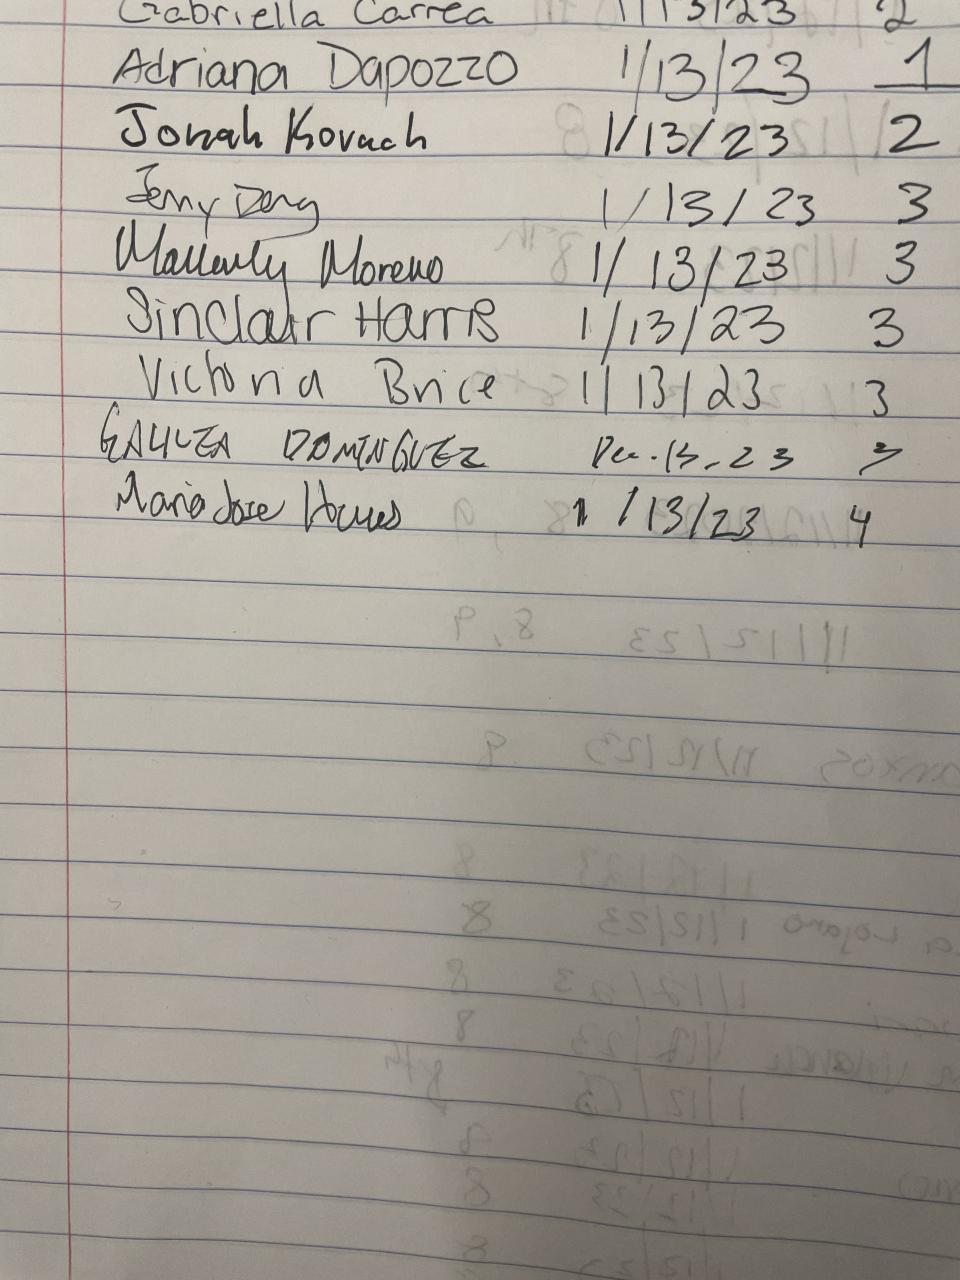 Gabriella Carrea 1/13/23 2
Adriana Dapozzo 1/13/23 1
Jonah Kovach 1/13/23 2
Jenny Deng 1/13/23 3
Moreno 1/13/23 3
Sinclair Harris 1/13/23 3
Victoria Brice 1/13/23 3
GALILEA DOMINGUEZ Dec. 13. 23 3
Maria Jose 1/13/23 4